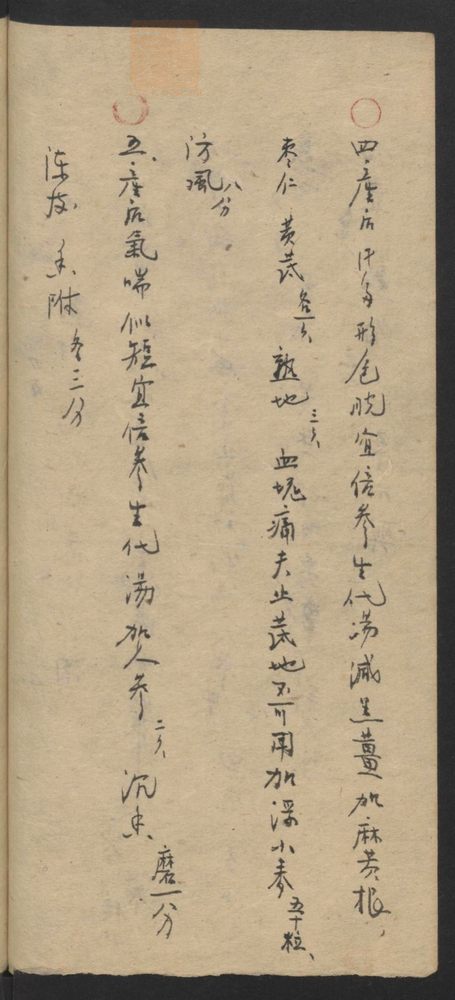 四、產后汗多形色脫宜倍參生代湯減黑薑加麻黃根、
棗仁 黃芪各一錢 熟地三錢 血塊痛夫止芪地不可用加浮小麥五十粒、
防風八分
五、產后氣喘似短宜倍參生代湯加人參二錢 沉香磨一分
陳皮 香附各三分